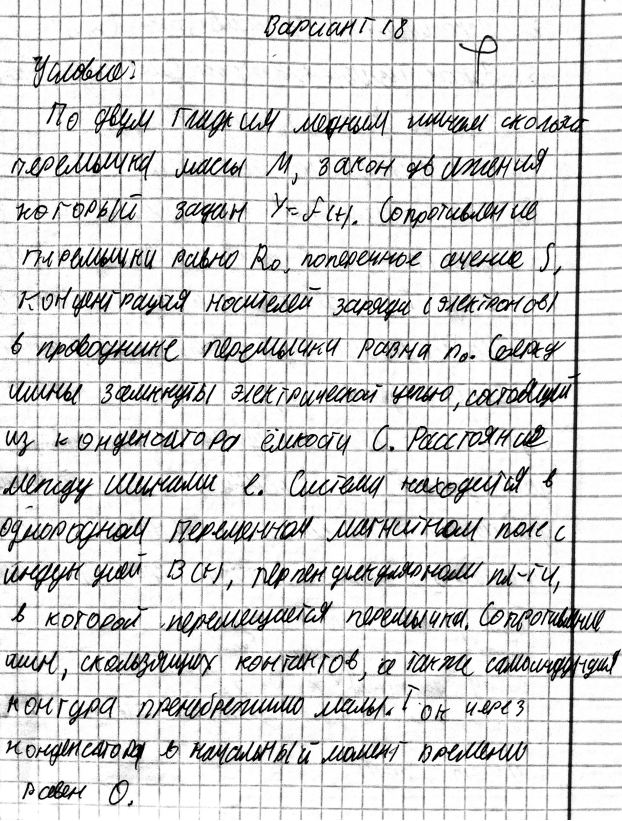 Вариант 18
Условие:
По двум гладким медным шинам скользит
перемычка массы М, закон движения
который задан У=f(t). Сопротивление
перемычки равно R₀, поперечное сечение S,
концентрация носителей заряда (электронов)
в проводнике перемычки равна n₀. Сверху
шины замкнуты электрической цепью, состоящей
из конденсатора ёмкости С. Расстояние
между шинами l. Система находится в
однородном переменном магнитном поле с
индукцией B(t), перпендикулярном пл-ти,
в которой перемещается перемычка. Сопротивление
шин, скользящих контактов, а также самоиндукция
контура пренебрежимо малы. Ток через
конденсатор в начальный момент времени
равен 0.